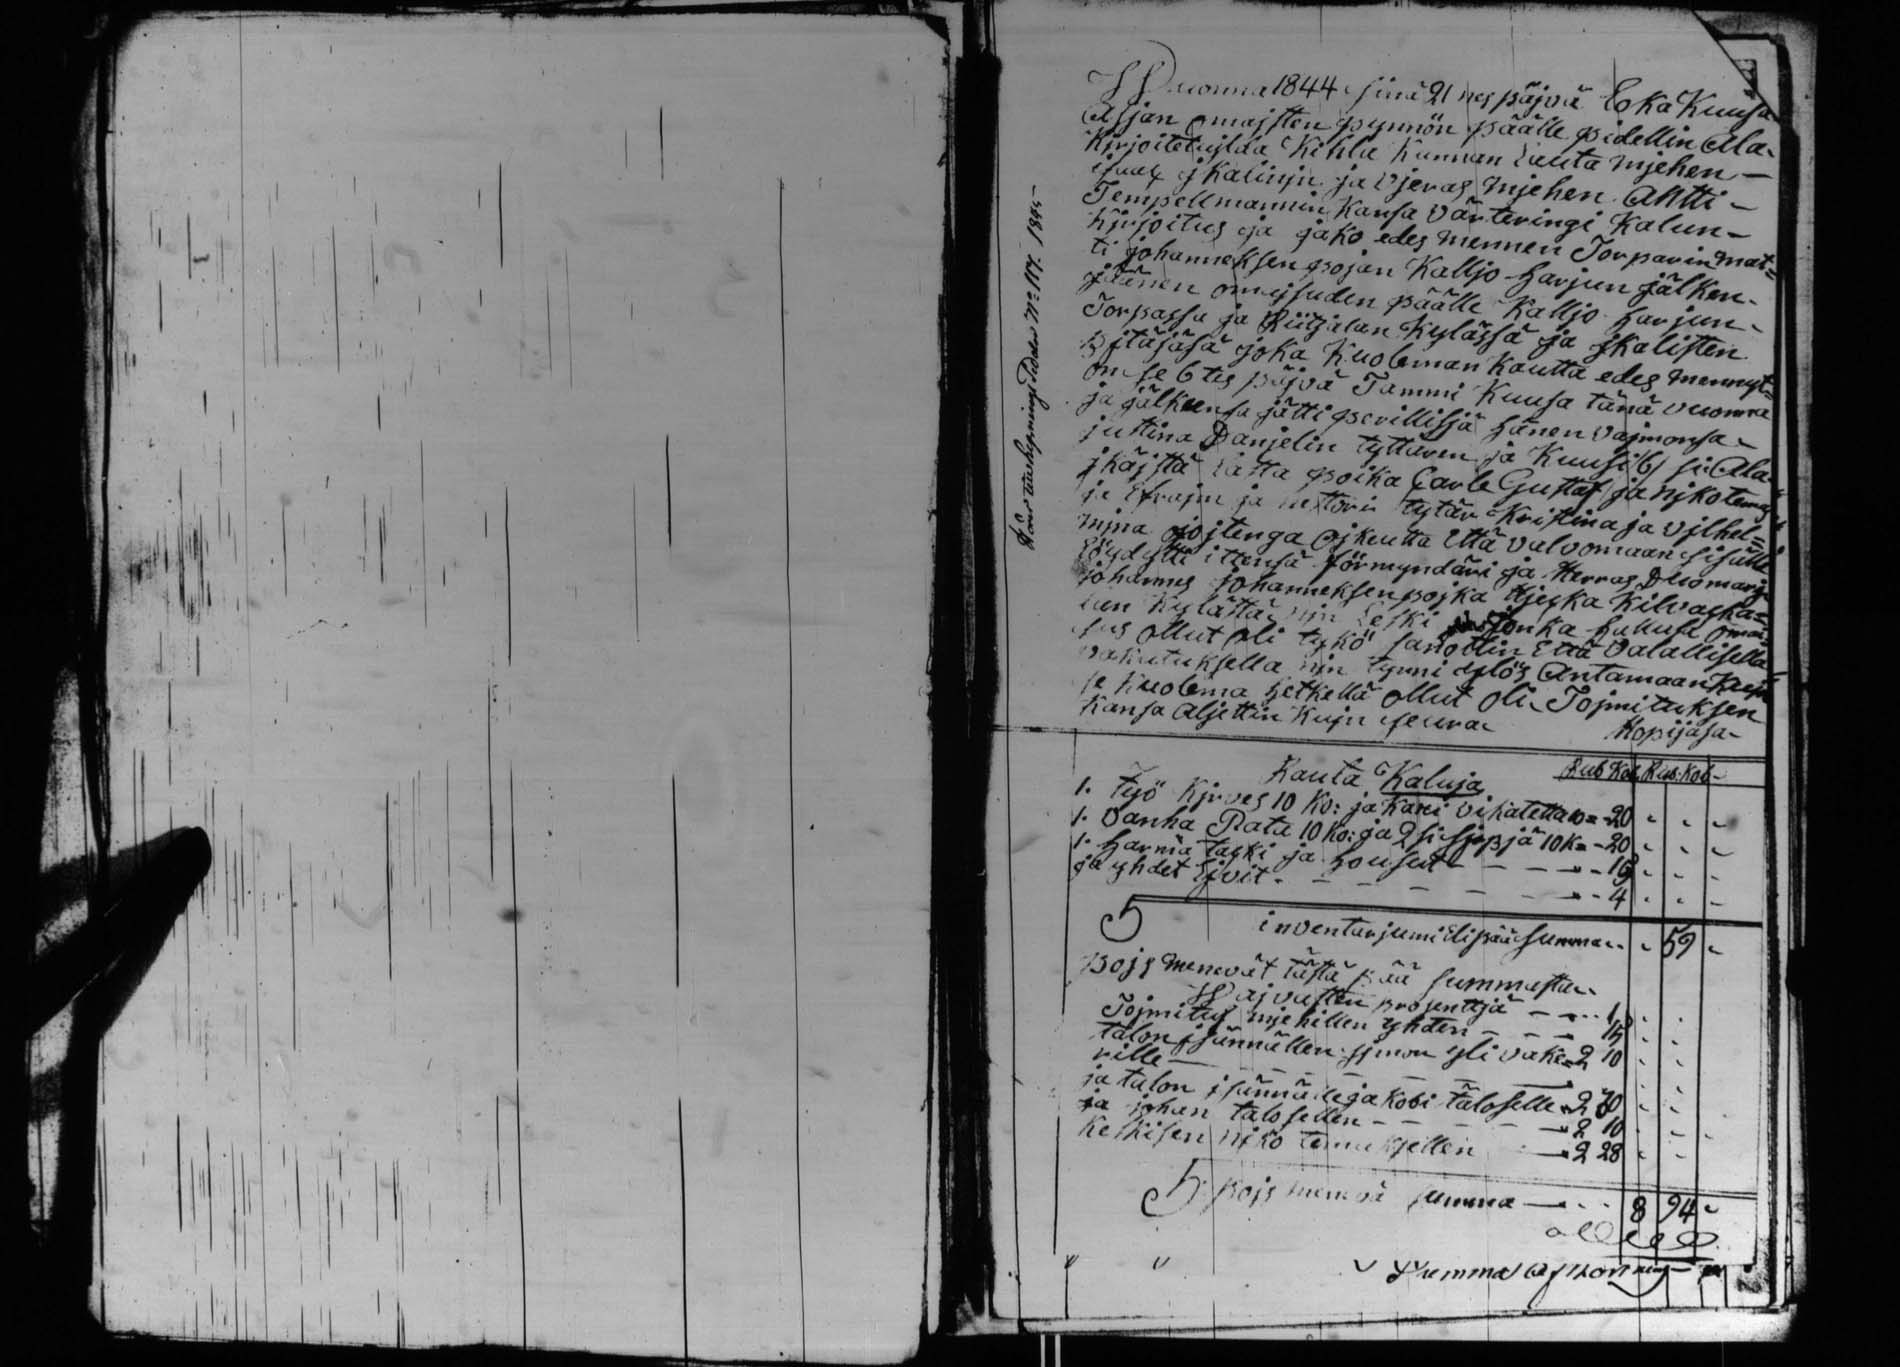 Wuonna 1844 sinä 21 nes päjvä Loka Kuusa
Asjan omajsten pynnön päälle pidellin Ala-
Kirjoitetujlda Kihla Kunnan Lauta mjehen
jsaax jkalinin ja vjeras mjehen Antti -
Tempellmannin Kansa värteringi Kalun-
Kirjoitus ja jako edes mennen Torparin mat-
ti johanneksen pojan Kalljo harjun jälken-
jäänen omajsuden päälle Kalljo harjun-
Torpassa ja Riitjalan Kylässä ja jkalisten
pitäjäsä joka Kuoleman Kautta edes mennyt-
on se 6 tes päjvä Tammi Kuusa tänä vuonna
ja jälkeensa jätti perillisjä hänen vajmonsa-
justina Danjelin tyttären ja Kuusi /6/ si Ala-
jkäjstä lasta poika Carle Gustaf ja njkotemus
ja Efrajm ja hettori tytär Kristina ja vjlhel-
mjna jojtenga ojkeutta Että valvomaan sisälle
Löydytti ittensä förmyndäri ja Herras Duomari
johannes johanneksen pojka Kilvaska-
lan Kylättä njn Leski Jonka hallusa omai-
sus ollut oli tykö sanottin Että valallisella
vakutuksella njn tynni ylös Antamaan Kujn
se Kuolema hetkellä ollut oli Tojmituksen
Kansa aljettin Kujn seura-
Hopijasa-
Rub Kop Rub. Kob-
Rauta Kaluja
1. Työ Kjrves 10 Ko: ja Kaxi vikatetta 10 = - 20
1. Vanha Pata 10 Ko: ja 2 si 10 K = - 20
1. harma takki ja housut - - - 15
ja yhdet - - - 4
S inventarjumi Eli pää summa - - 59 -
Pojs menevät tästä pää summasta
Wajvasten prosenttjä - - - 1
Tojmitus mjehillen yhden - - - 15
talon jsännällen sjmon yli vake- 2 10
rille
ja talon jsännälle jakobi taloselle - 2 30
ja johan talosellen - - - 2 10
Keskisen njko temuksellen - 2 28
S. pojs menevä summa - - - 8 94 -
Summa